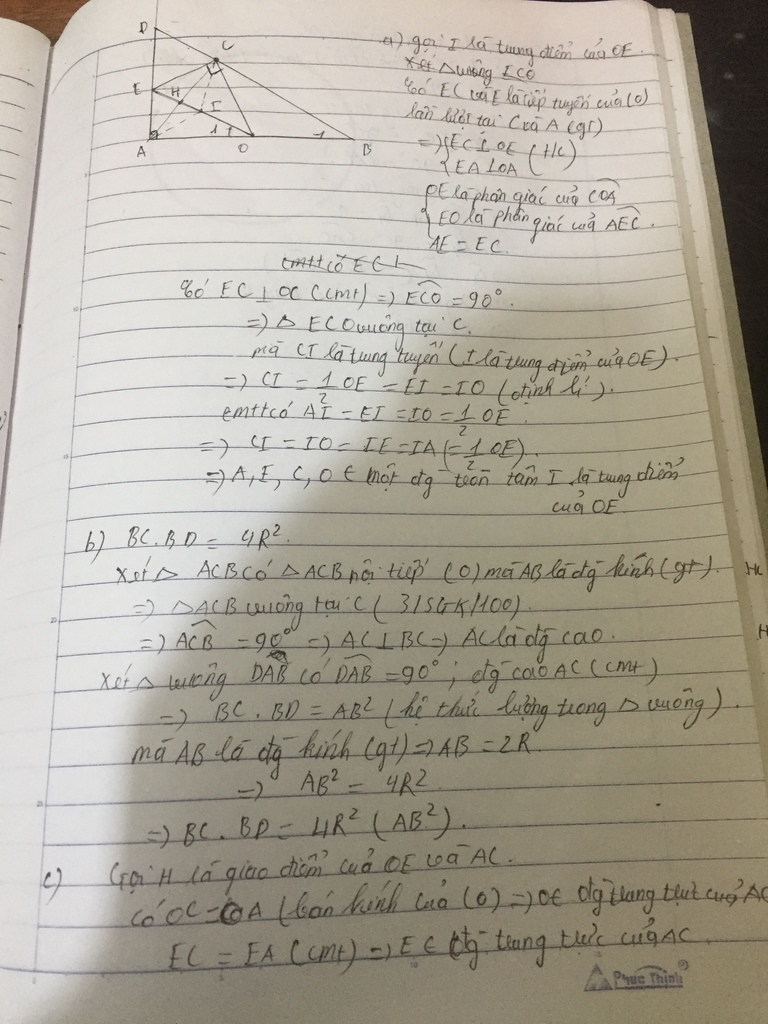 D
C
E
H
I
1
A
O
B
a) gọi I là trung điểm của OE.
Xét △ vuông ECO
Có EC và E là tiếp tuyến của (O)
lần lượt tại C và A (gt)
=> { EC ⊥ OE (t/c)
{ EA ⊥ OA
{ OE là phân giác của COA
EO là phân giác của AEC.
AE = EC.
cmtt có EC ⊥
Có EC ⊥ OC (cmt) => ECO = 90°.
=> △ ECO vuông tại C.
mà CI là trung tuyến (I là trung điểm của OE).
=> CI = 1/2 OE = EI = IO (định lí).
cmtt có AI = EI = IO = 1/2 OE.
=> CI = IO = IE = IA (= 1/2 OE).
=> A, E, C, O ∈ một đg tròn tâm I là trung điểm
của OE
b) BC.BD = 4R².
Xét △ ACB có △ ACB nội tiếp (O) mà AB là đg kính (gt).
=> △ACB vuông tại C (3/SGK/100).
=> ACB = 90° => AC ⊥ BC => AC là đg cao.
Xét △ vuông DAB có DAB = 90°; đg cao AC (cmt)
=> BC.BD = AB² (hệ thức lượng trong △ vuông).
mà AB là đg kính (gt) => AB = 2R
=> AB² = 4R²
=> BC.BD = 4R² (AB²).
c) Gọi H là giao điểm của OE và AC.
Có OC = OA (bán kính của (O) => O ∈ đg trung trực của AC
EC = EA (cmt) => E ∈ đg trung trực của AC
Phuc Thinh®